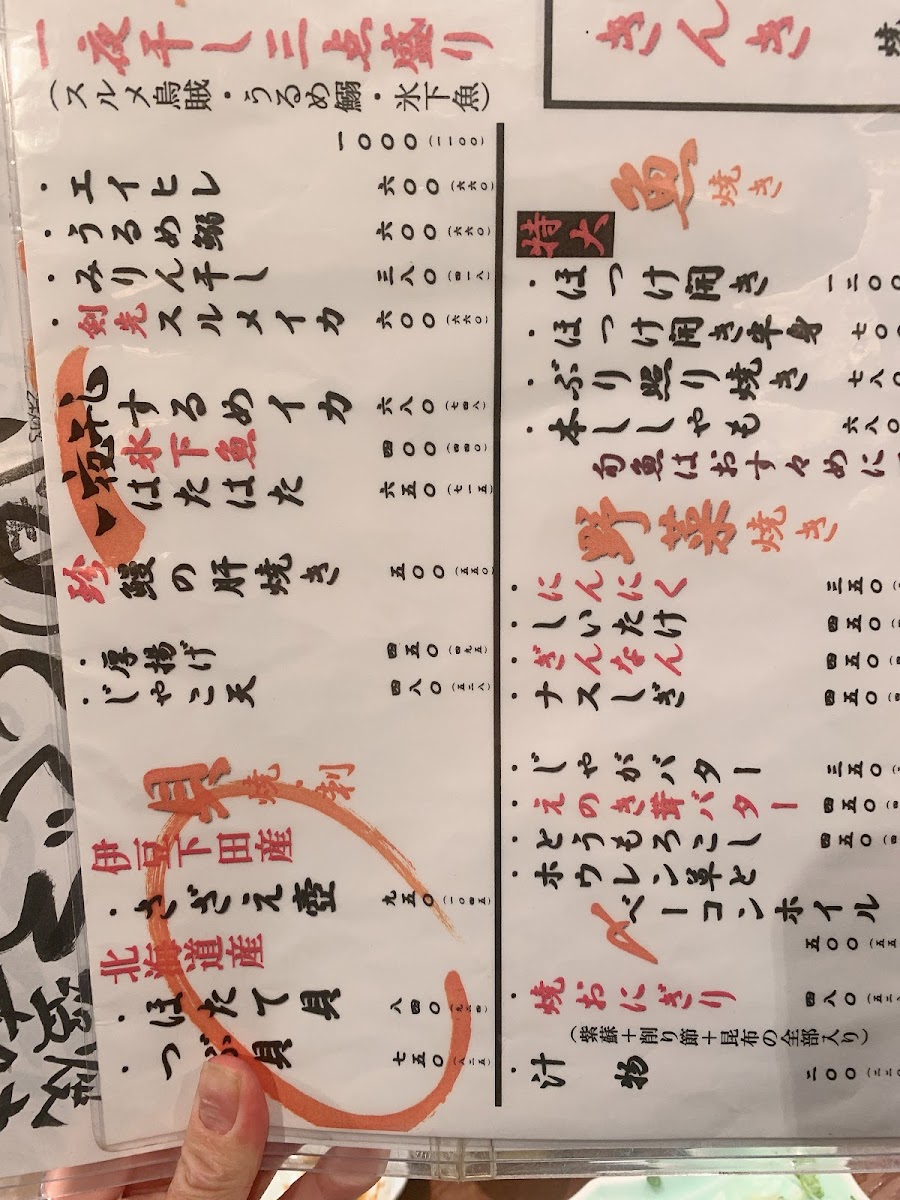 一夜干し三点盛り
(スルメ烏賊・うるめ鰯・氷下魚)
一〇〇〇(一一〇〇)
・エイヒレ 六〇〇(六六〇)
・うるめ鰯 六〇〇(六六〇)
・みりん干し 三八〇(四一八)
・剣先スルメイカ 六〇〇(六六〇)
一夜干し
するめイカ 六八〇(七四八)
氷下魚 四〇〇(四四〇)
はたはた 六五〇(七一五)
珍 鰻の肝焼き 五〇〇(五五〇)
・厚揚げ 四五〇(四九五)
・じゃこ天 四八〇(五二八)
貝 焼・刺
伊豆下田産
・さざえ壺 九五〇(一〇四五)
北海道産
・ほたて貝 八四〇(九二四)
・つぶ貝 七五〇(八二五)
きんき
魚焼き
特大
・ほっけ開き
・ほっけ開き半身 七〇
・ぶり照り焼き 七八〇
・本ししゃも 六八〇
旬魚はおす々めに
野菜焼き
・にんにく 三五〇
・しいたけ 四五〇
・ぎんなん 四五〇
・ナスしぎ 四五〇
・じゃがバター 三五〇
・えのき茸バター 四五〇
・とうもろこし 四五〇
・ホウレン草と
ベーコンホイル
五〇〇(五五
・焼おにぎり 四八〇(五二
(紫蘇+削り節+昆布の全部入り)
・汁物 二〇〇(二二